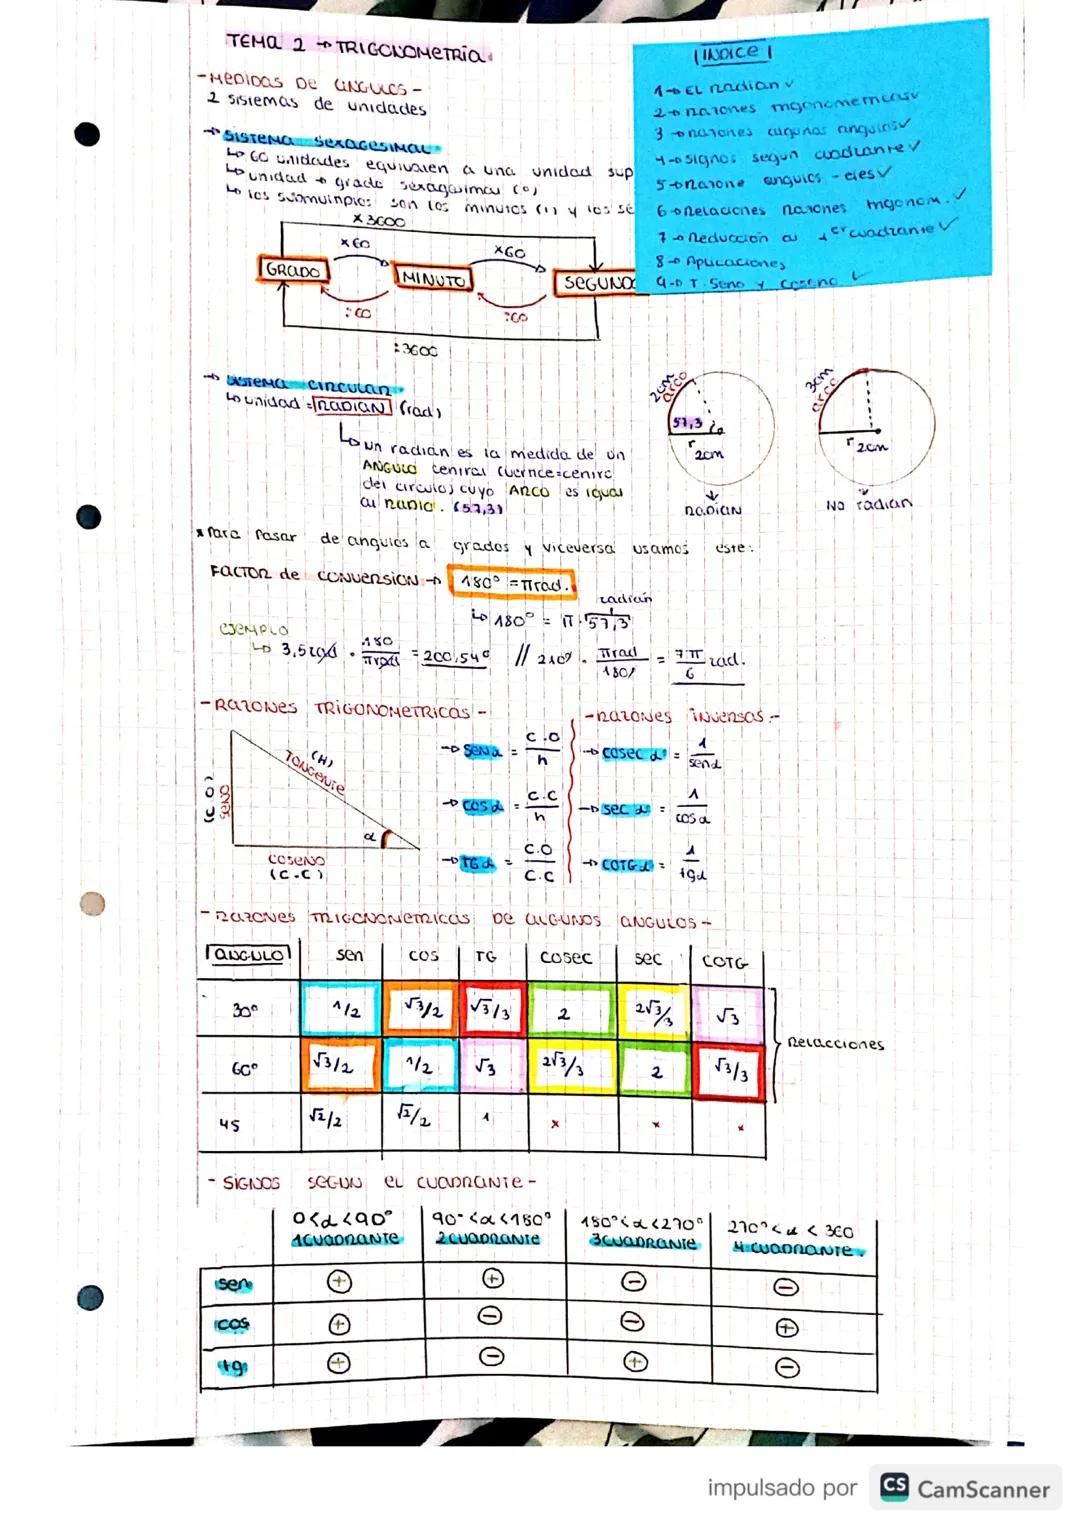 TEMA 2 → TRIGONOMETRIA
ÍNDICE
1→ EL radian ✓
2→ razones trigonometricas ✓
3→ razones algunos angulos ✓
4→ signos segun cuadrante ✓
5→ razone angulos - ejes ✓
6→ Relaciones razones trigonom. ✓
7→ Reducción al 1er cuadrante ✓
8→ Aplicaciones
9→ T. Seno y Coseno ✓
- MEDIDAS DE ANGULOS -
2 sistemas de unidades
→ SISTEMA SEXAGESIMAL
↳ 60 unidades equivalen a una unidad sup
↳ unidad → grado sexagesimal (°)
↳ los submultiplos son los minutos (') y los se
x 3600
x 60
x60
GRADO
MINUTO
SEGUNDO
:60
:60
:3600
→ SISTEMA CIRCULAR
↳ unidad = RADIAN (rad)
↳ un radian es la medida de un
ANGULO central (vertice=centro
del circulo) cuyo ARCO es igual
al radio. (57,3)
2cm
arco
57,3
r
2cm
↓
RADIAN
3cm
arco
r
2cm
↓
NO radian
* Para pasar de angulos a grados y viceversa usamos este:
FACTOR de CONVERSION → 180° = π rad.
radián
↳ 180° = π · 57,3
EJEMPLO
↳ 3,5 rad · 180/π rad = 200,54° // 210° · π rad/180° = 7π/6 rad.
- RAZONES TRIGONOMETRICAS -
- RAZONES INVERSAS -
(H)
TANGENTE
(C.O)
SENO
α
COSENO
(C.C)
→ SEN α = C.O/h
→ COSEC α = 1/sen α
→ COS α = C.C/h
→ SEC α = 1/cos α
→ TG α = C.O/C.C
→ COTG α = 1/tg α
- RAZONES TRIGONOMETRICAS DE ALGUNOS ANGULOS -
ANGULO sen cos TG cosec sec COTG
30° 1/2 √3/2 √3/3 2 2√3/3 √3
Relacciones
60° √3/2 1/2 √3 2√3/3 2 √3/3
45 √2/2 √2/2 1 x x x
- SIGNOS SEGUN EL CUADRANTE -
0<α<90° 90°<α<180° 180°<α<270° 270°<α<360
1CUADRANTE 2CUADRANTE 3CUADRANTE 4 CUADRANTE.
sen + + - -
cos + - - +
tg + - + -
impulsado por CS CamScanner